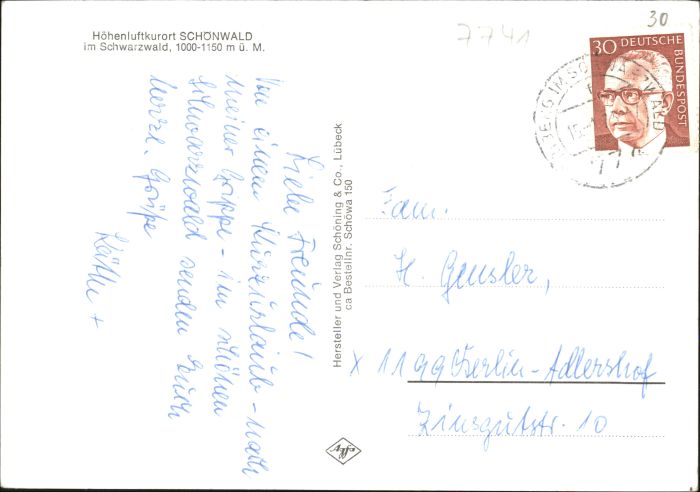 Höhenluftkurort SCHÖNWALD
im Schwarzwald, 1000-1150 m ü. M.
7741
30
30 DEUTSCHE
BUNDESPOST
Liebe Freunde!
Von einem Kurzurlaub - nach
meiner Grippe - im schönen
Schwarzwald senden Euch
herzl. Grüße
Käthe +
Hersteller und Verlag Schöning & Co., Lübeck
ca Bestellnr. Schöwa 150
Fam.
H. Gensler,
X 1199 Berlin-Adlershof
Zinsgutstr. 10